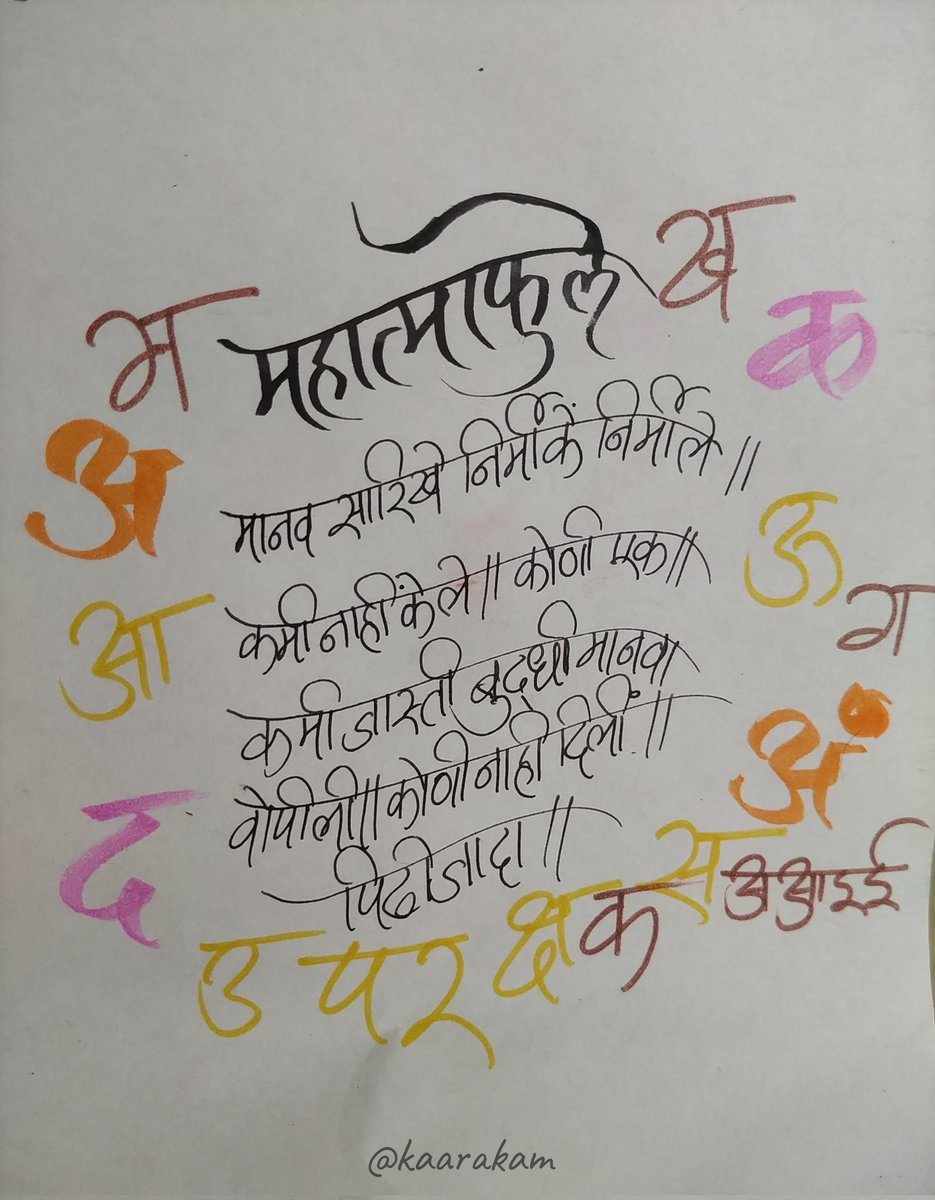 महात्मा फुले
म
ख
क
मानव सारिखे निर्मीकें निर्मीले ||
अ
कमी नाहीं केले || कोणी एक ||
ऊ
आ
ग
कमी जास्ती बुद्धी मानवा
वोपीली || कोणी नाही दिलीं ||
अं
द
पिढीजादा ||
उ प र क्ष क स
अ आ इ ई
@kaarakam